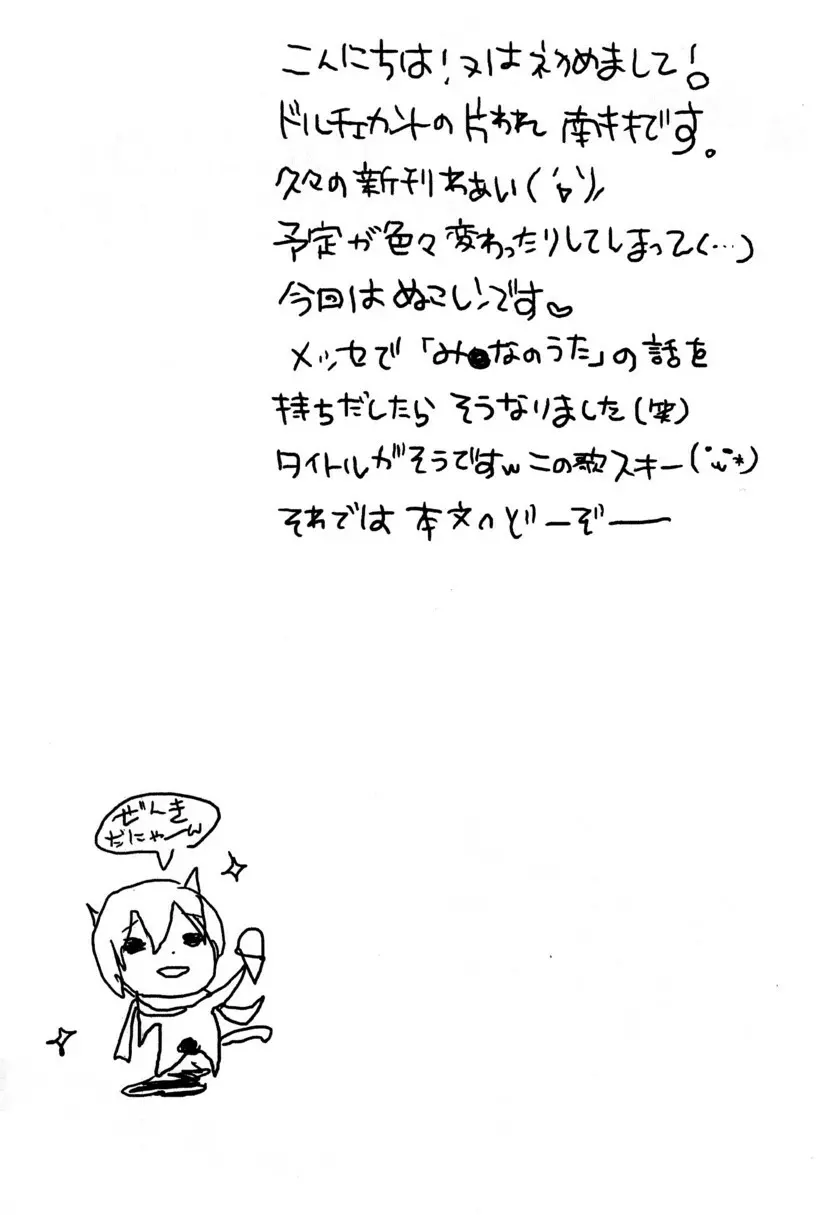 こんにちは!又はネ刀めまして!。
ドルチェカントの片われ 南ききです。
久々の新刊わあい('▽')ノ
予定が色々変わったりしてしまって(…)
今回はぬこレンです♡
メッセで「み●なのうた」の話を
持ちだしたら そうなりました(笑)
タイトルがそうですw この歌スキー(´ω`*)
それでは 本文へどーぞー
ぜんき
だにゃーw